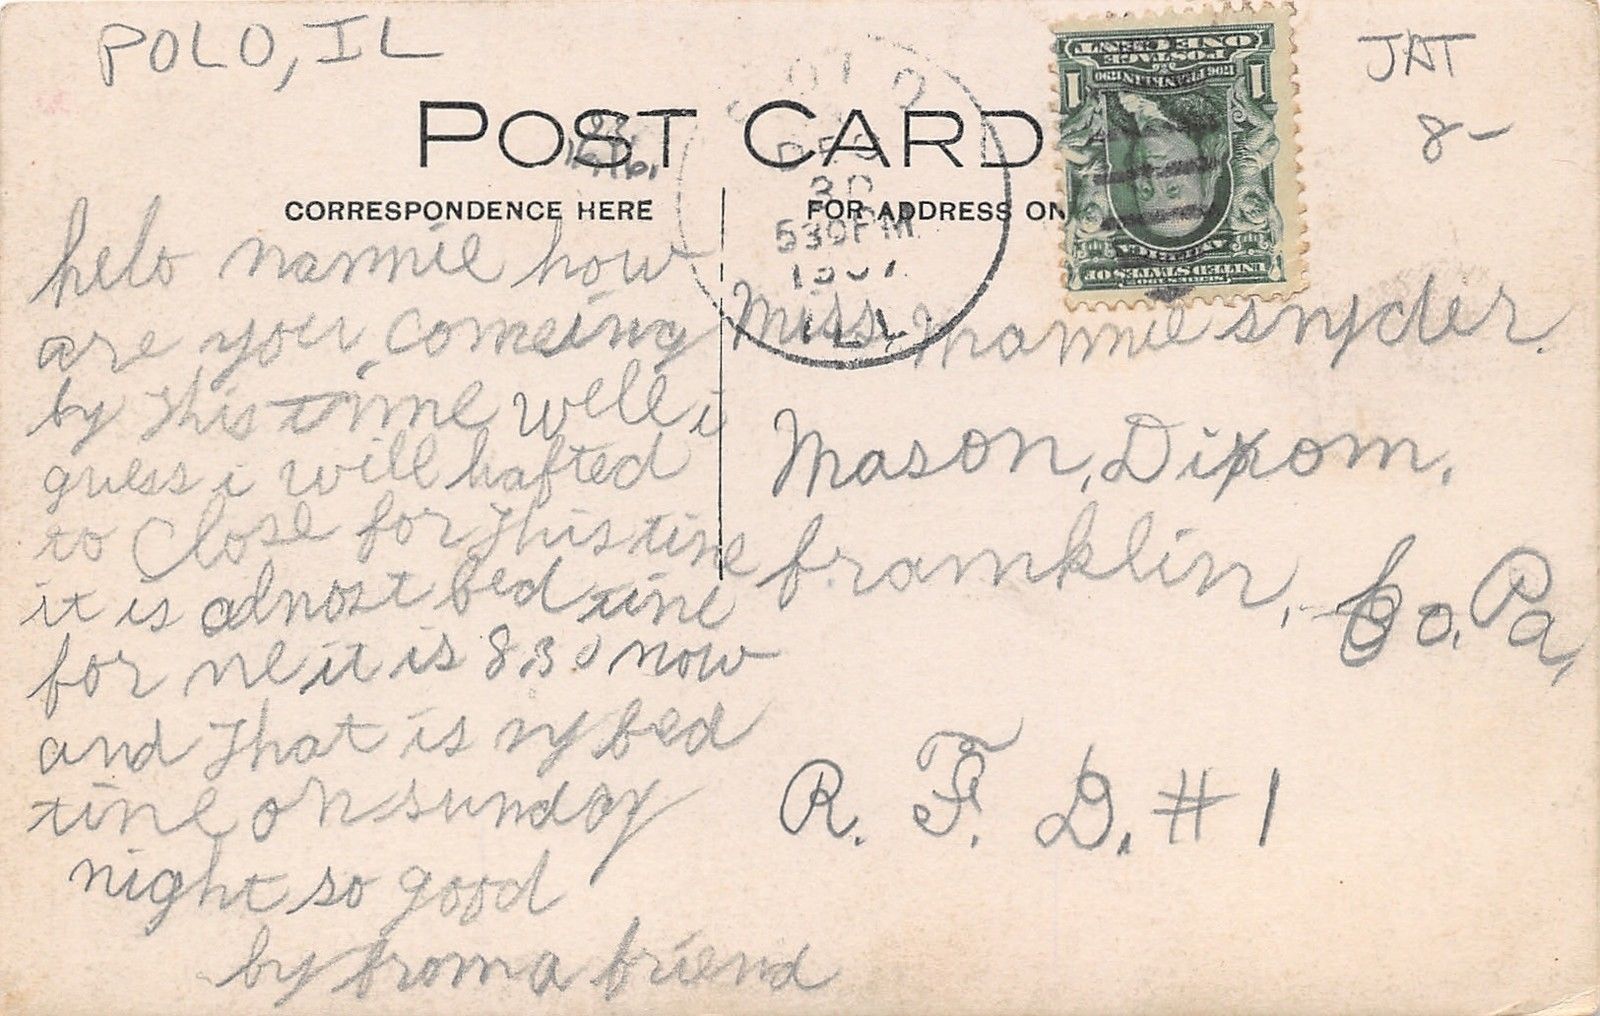 POLO, IL
JAT
8-
POST CARD
CORRESPONDENCE HERE
FOR ADDRESS ON
POLO
DEC
30
530 PM
1907
ILL
ONE CENT
POSTAGE
1 1
FRANKLIN
UNITED STATES OF
AMERICA
helo nannie how
are you comeing
by this time well i
guess i will hafted
to close for this tine
it is alnost bed tine
for ne it is 8.30 now
and that is ny bed
tine on sunday
night so good
by from a friend
Miss. Nannie snyder.
Mason, Dixon,
franklin, Co. Pa,
R. F. D. # 1